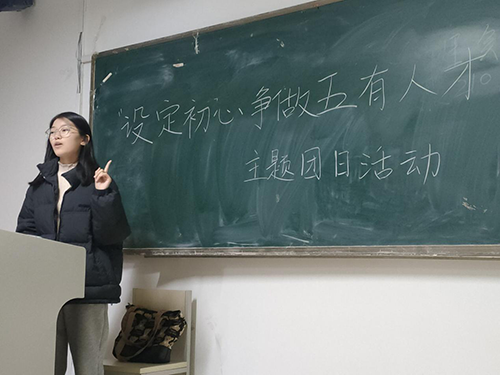 “设定初心争做五有人才。
主题团日活动